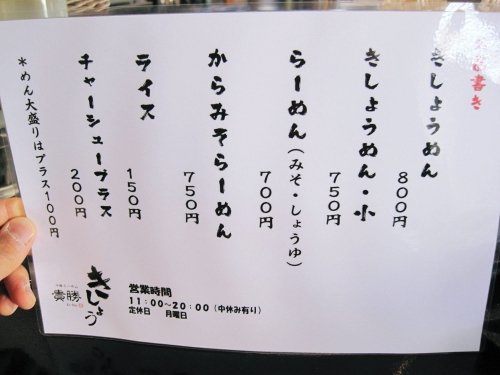 お品書き
きしょうめん
800円
きしょうめん・小
750円
らーめん(みそ・しょうゆ)
700円
からみそらーめん
750円
ライス
150円
チャーシュープラス
200円
*めん大盛りはプラス100円
きしょう
貴勝
営業時間
11:00~20:00(中休み有り)
定休日 月曜日